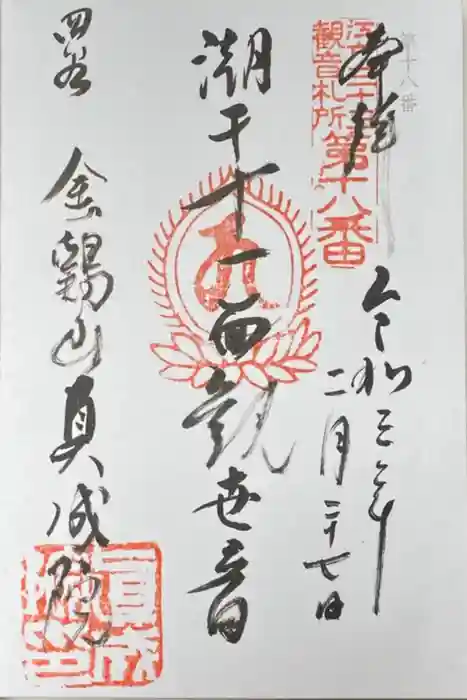 第十八番
江戸三十三
観音札所第十八番
奉拝
令和三年
二月二十七日
潮干十一面観世音
四谷
金鶏山真成院